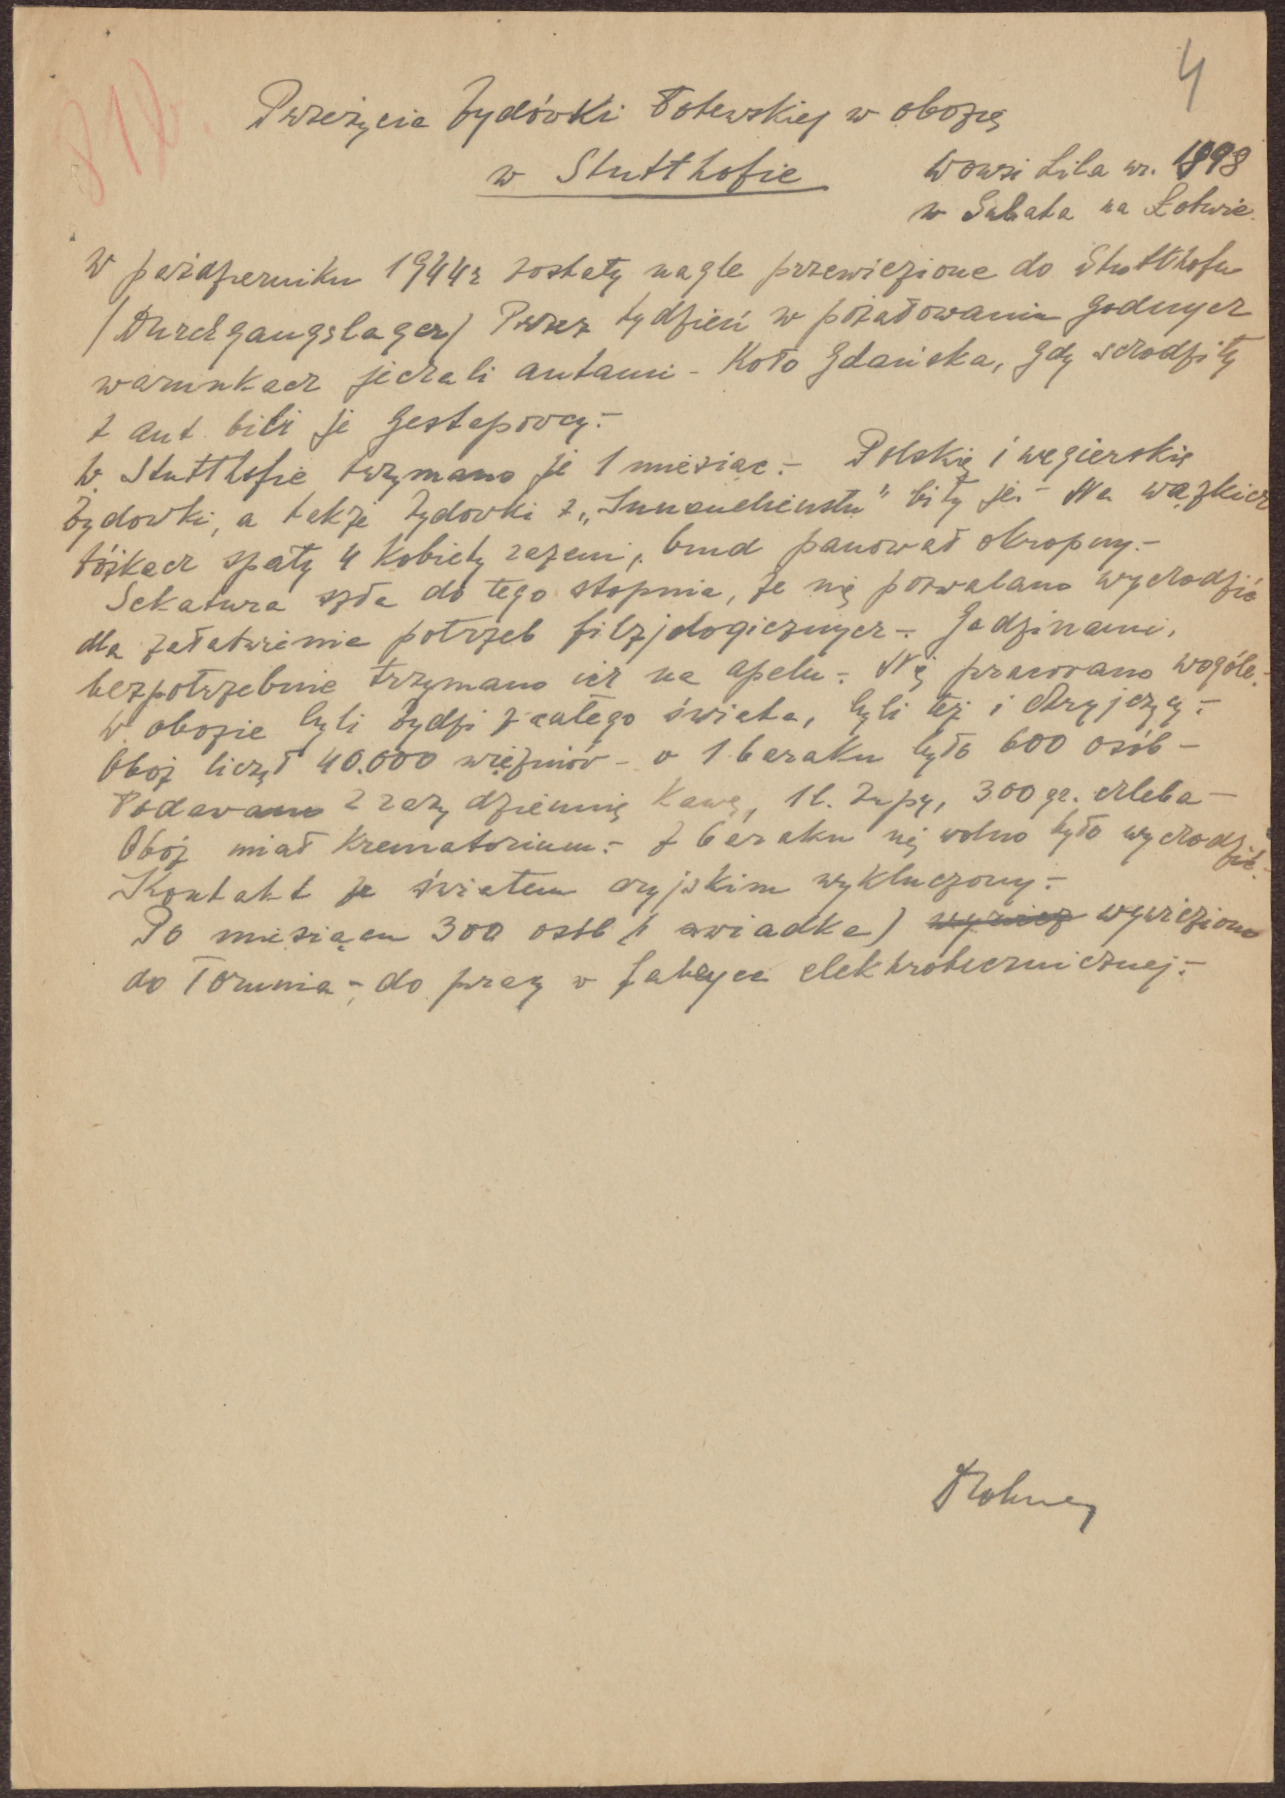 4
818.
Przeżycia Żydówki Łotewskiej w obozie
w Stutthofie
Wowsi Lila ur. 1898
w Sabata na Łotwie.
W październiku 1944r zostały nagle przewiezione do Stutthofu
/Durchgangslager/ Przez tydzień w pożałowania godnych
warunkach jechali autami - Koło Gdańska, gdy schodziły
z aut bili je Gestapowcy.-
W Stutthofie trzymano je 1 miesiąc.- Polskie i węgierskie
Żydowki, a także Żydowki z „ " biły je.- Na wązkich
łóżkach spały 4 Kobiety razem, brud panował okropny.-
Sekatura szła do tego stopnia, że nie pozwalano wychodzić
dla załatwienia potrzeb fizjologicznych-. Godzinami,
bezpotrzebnie trzymano ich na apelu-. Nie pracowano wogóle.-
W obozie byli Żydzi z całego świata, byli też i Aryjczycy.-
Obóz liczył 40.000 więźniów - w 1 baraku było 600 osób -
Podawano 2 razy dziennie Kawę, 1 l. Zupy, 300 gr. chleba -
Obóz miał Krematorium.- Z baraku nie wolno było wychodzić.-
Kontakt ze światem aryjskim wykluczony.-
Po miesiącu 300 osób (i swiadka) wywieziono
do Torunia -, do pracy w fabryce elektrotechnicznej.-